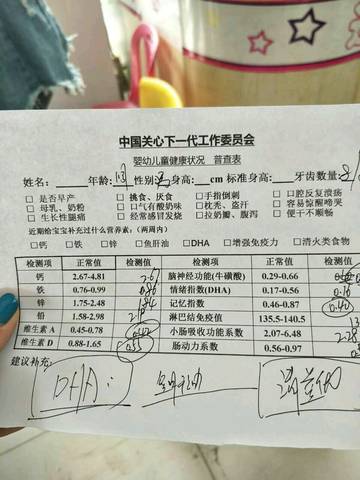 中国关心下一代工作委员会
婴幼儿童健康状况 普查表
姓名: 年龄: 性别 身高: cm 标准身高: 牙齿数量:
□ 是否早产 □ 挑食、厌食 □ 手指倒刺 □ 口腔反复溃疡
□ 母乳、奶粉 □ 口气有酸奶味 □ 枕秃、盗汗 □ 容易惊醒啼哭
□ 生长性腿痛 □ 经常感冒发烧 □ 拉奶瓣、腹泻 □ 便干不顺畅
近期给宝宝补充过什么营养素: (两周内)
□钙 □铁 □锌 □鱼肝油 □DHA □增强免疫力 □清火类食物
检测项 正常值 检测值 检测项 正常值 检测值
钙 2.67-4.81 2.67 脑神经功能(牛磺酸) 0.29-0.66
铁 0.76-0.99 0.86 情绪指数(DHA) 0.17-0.56 0.16
锌 1.75-2.48 1.84 记忆指数 0.46-0.87 0.40
铅 1.58-2.98 淋巴结免疫值 135.5-140.5
维生素 A 0.45-0.78 小肠吸收功能系数 2.07-6.48 2.28
维生素 D 0.88-1.65 0.55 肠动力系数 0.56-0.97
建议补充:
DHA: